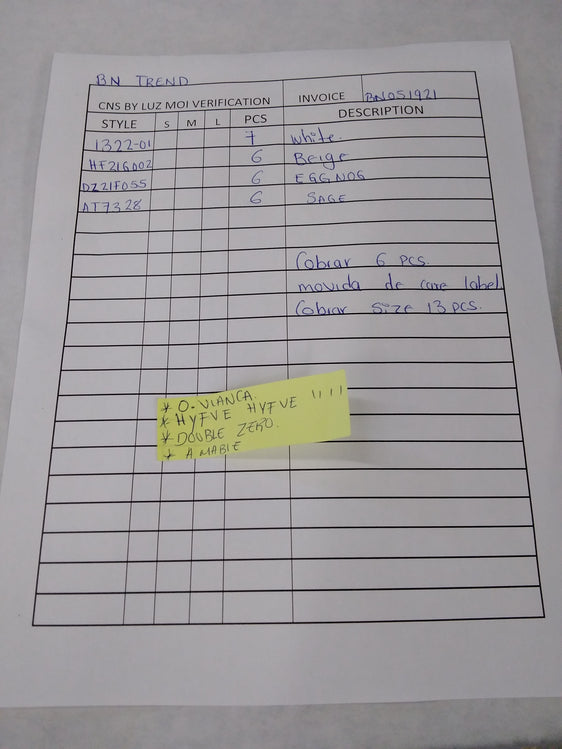 BN TREND
CNS BY LUZ MOI VERIFICATION INVOICE BN051921
STYLE S M L PCS DESCRIPTION
1322-01 7 white.
HF21G002 6 Beige
DZ21F055 6 EGGNOG
AT7328 6 SAGE
Cobrar 6 pcs.
movida de care label.
Cobrar size 13 pcs.
* O. VIANCA.
* HYFVE HYFVE ''''
* DOUBLE ZERO.
* AMABLE